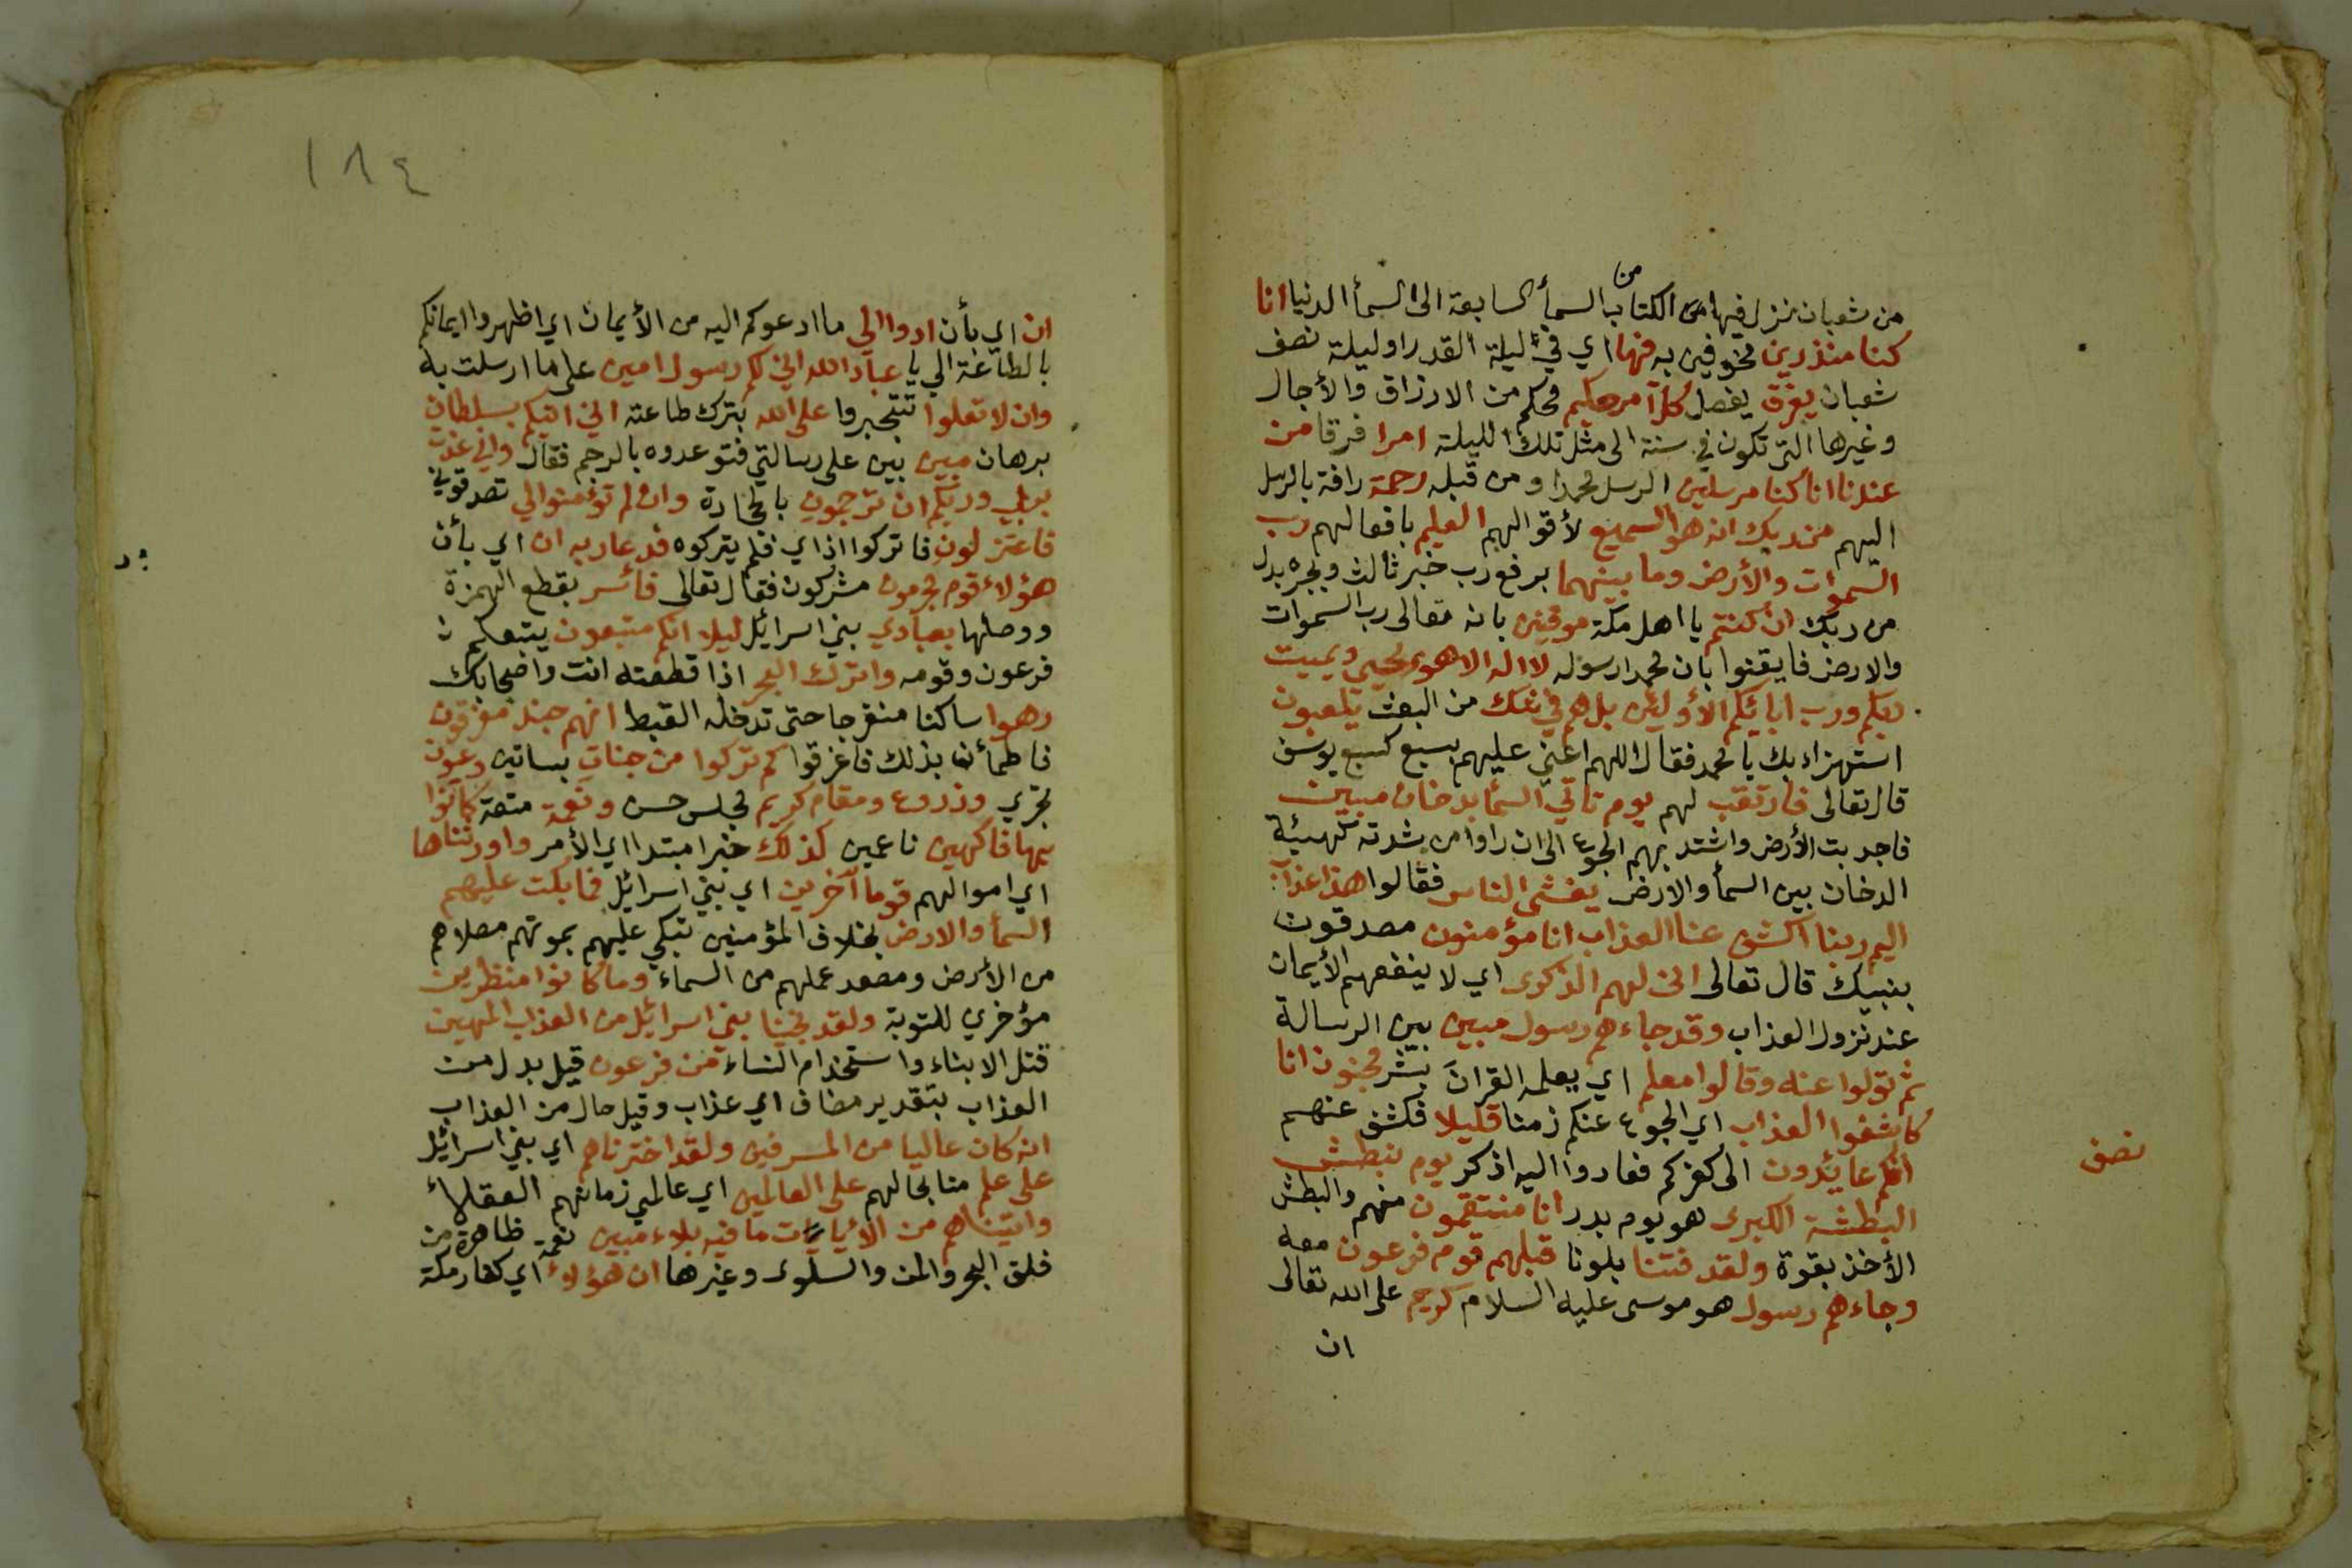 من
من شعبان نزل فيها من الكتاب السمأ السابعة الى السمأ الدنيا انا
كنا منذرين مخوفين به فيها اي في ليلة القدر او ليلة نصف
شعبان يفرق يفصل كل امر حكيم محكم من الارزاق والأجال
وغيرها التي تكون في سنة الى مثل تلك الليلة امرا فرقا من
عندنا انا كنا مرسلين الرسل محمدا ومن قبله رحمة رافة بالرسل
اليهم من ربك انه هو السميع لأقوالهم العليم بافعالهم رب
السموات والأرض وما بينهما برفع رب خبر ثالث وبجره بدل
من ربك ان كنتم يا اهل مكة موقنين بانه تعالى رب السموات
والارض فايقنوا بان محمدا رسوله لا اله الا هو يحيي ويميت
ربكم ورب ابائكم الأولين بل هم في شك من البعث يلعبون
استهزاء بك يا محمد فقال اللهم اعني عليهم بسبع كسبع يوسف
قال تعالى فارتقب لهم يوم تاتي السمأ بدخان مبين
فاجدبت الأرض واشتد بهم الجوع الى ان راوا من شدته كهيئة
الدخان بين السمأ والارض يغشى الناس فقالوا هذا عذاب
اليم ربنا اكشف عنا العذاب انا مؤمنون مصدقون
بنبيك قال تعالى انى لهم الذكرى اي لا ينفعهم الأيمان
عند نزول العذاب وقد جاءهم رسول مبين بين الرسالة
ثم تولوا عنه وقالوا معلم اي يعلمه القران بشر مجنون انا
كاشفوا العذاب اي الجوع عنكم زمنا قليلا فكشف عنهم
انكم عائدون الى كفركم فعادوا اليه اذكر يوم نبطش
البطشة الكبرى هو يوم بدر انا منتقمون منهم والبطش
الأخذ بقوة ولقد فتنا بلونا قبلهم قوم فرعون معه
وجاءهم رسول هو موسى عليه السلام كريم على الله تعالى
ان
نصف
١٨٤
ان اي بأن ادوا الي ما ادعوكم اليه من الأيمان اي اظهروا ايمانكم
بالطاعة الي يا عباد الله اني لكم رسول امين على ما ارسلت به
وان لا تعلوا تتجبروا على الله بترك طاعته اني اتيكم بسلطان
برهان مبين بين على رسالتي فتوعدوه بالرجم فقال واني عذت
بربي وربكم ان ترجمون بالحجارة وان لم تؤمنوا لي تصدقوني
فاعتزلون فاتركوا اذاي فلم يتركوه فدعا ربه ان اي بأن
هؤلاء قوم مجرمون مشركون فقال تعالى فأسر بقطع الهمزة
ووصلها بعبادي بني اسرائل ليلا انكم متبعون يتبعكم
فرعون وقومه واترك البحر اذا قطعته انت واصحابك
رهوا ساكنا منفرجا حتى تدخله القبط انهم جند مغرقون
فاطمأن بذلك فاغرقوا كم تركوا من جنات بساتين وعيون
تجري وزروع ومقام كريم مجلس حسن ونعمة متعة كانوا
بها فاكهين ناعمين كذلك خبر مبتدا اي الأمر واورثناها
اي اموالهم قوما آخرين اي بني اسرائل فما بكت عليهم
السمأ والارض بخلاف المؤمنين تبكي عليهم بموتهم مصلاهم
من الأرض ومصعد عملهم من السماء وما كانوا منظرين
مؤخري للتوبة ولقد نجينا بني اسرائل من العذاب المهين
قتل الابناء واستخدام النساء من فرعون قيل بدل من
العذاب بتقدير مضاف اي عذاب وقيل حال من العذاب
انه كان عاليا من المسرفين ولقد اخترناهم اي بني اسرائل
على علم منا بحالهم على العالمين اي عالمي زمانهم العقلاء
واتيناهم من الأيات ما فيه بلاء مبين نعمة ظاهرة من
فلق البحر والمن والسلوى وغيرها ان هؤلاء اي كفار مكة